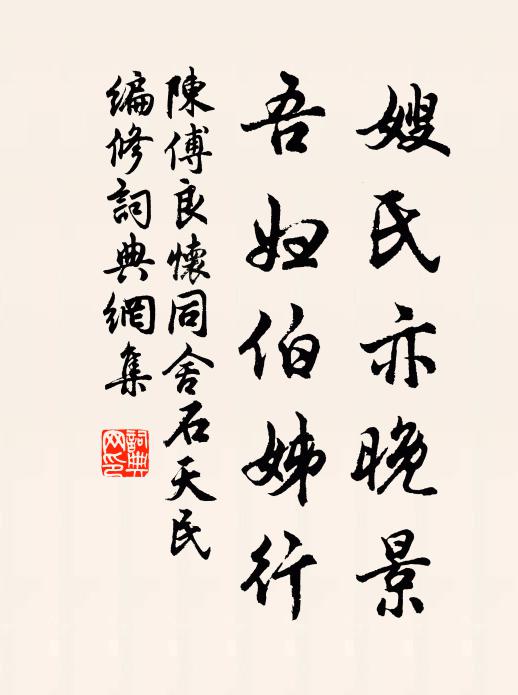 嫂氏亦晚景
吾妇伯姊行
陳傅良懷同舍石天民
編修詞典網集
詞典
网印